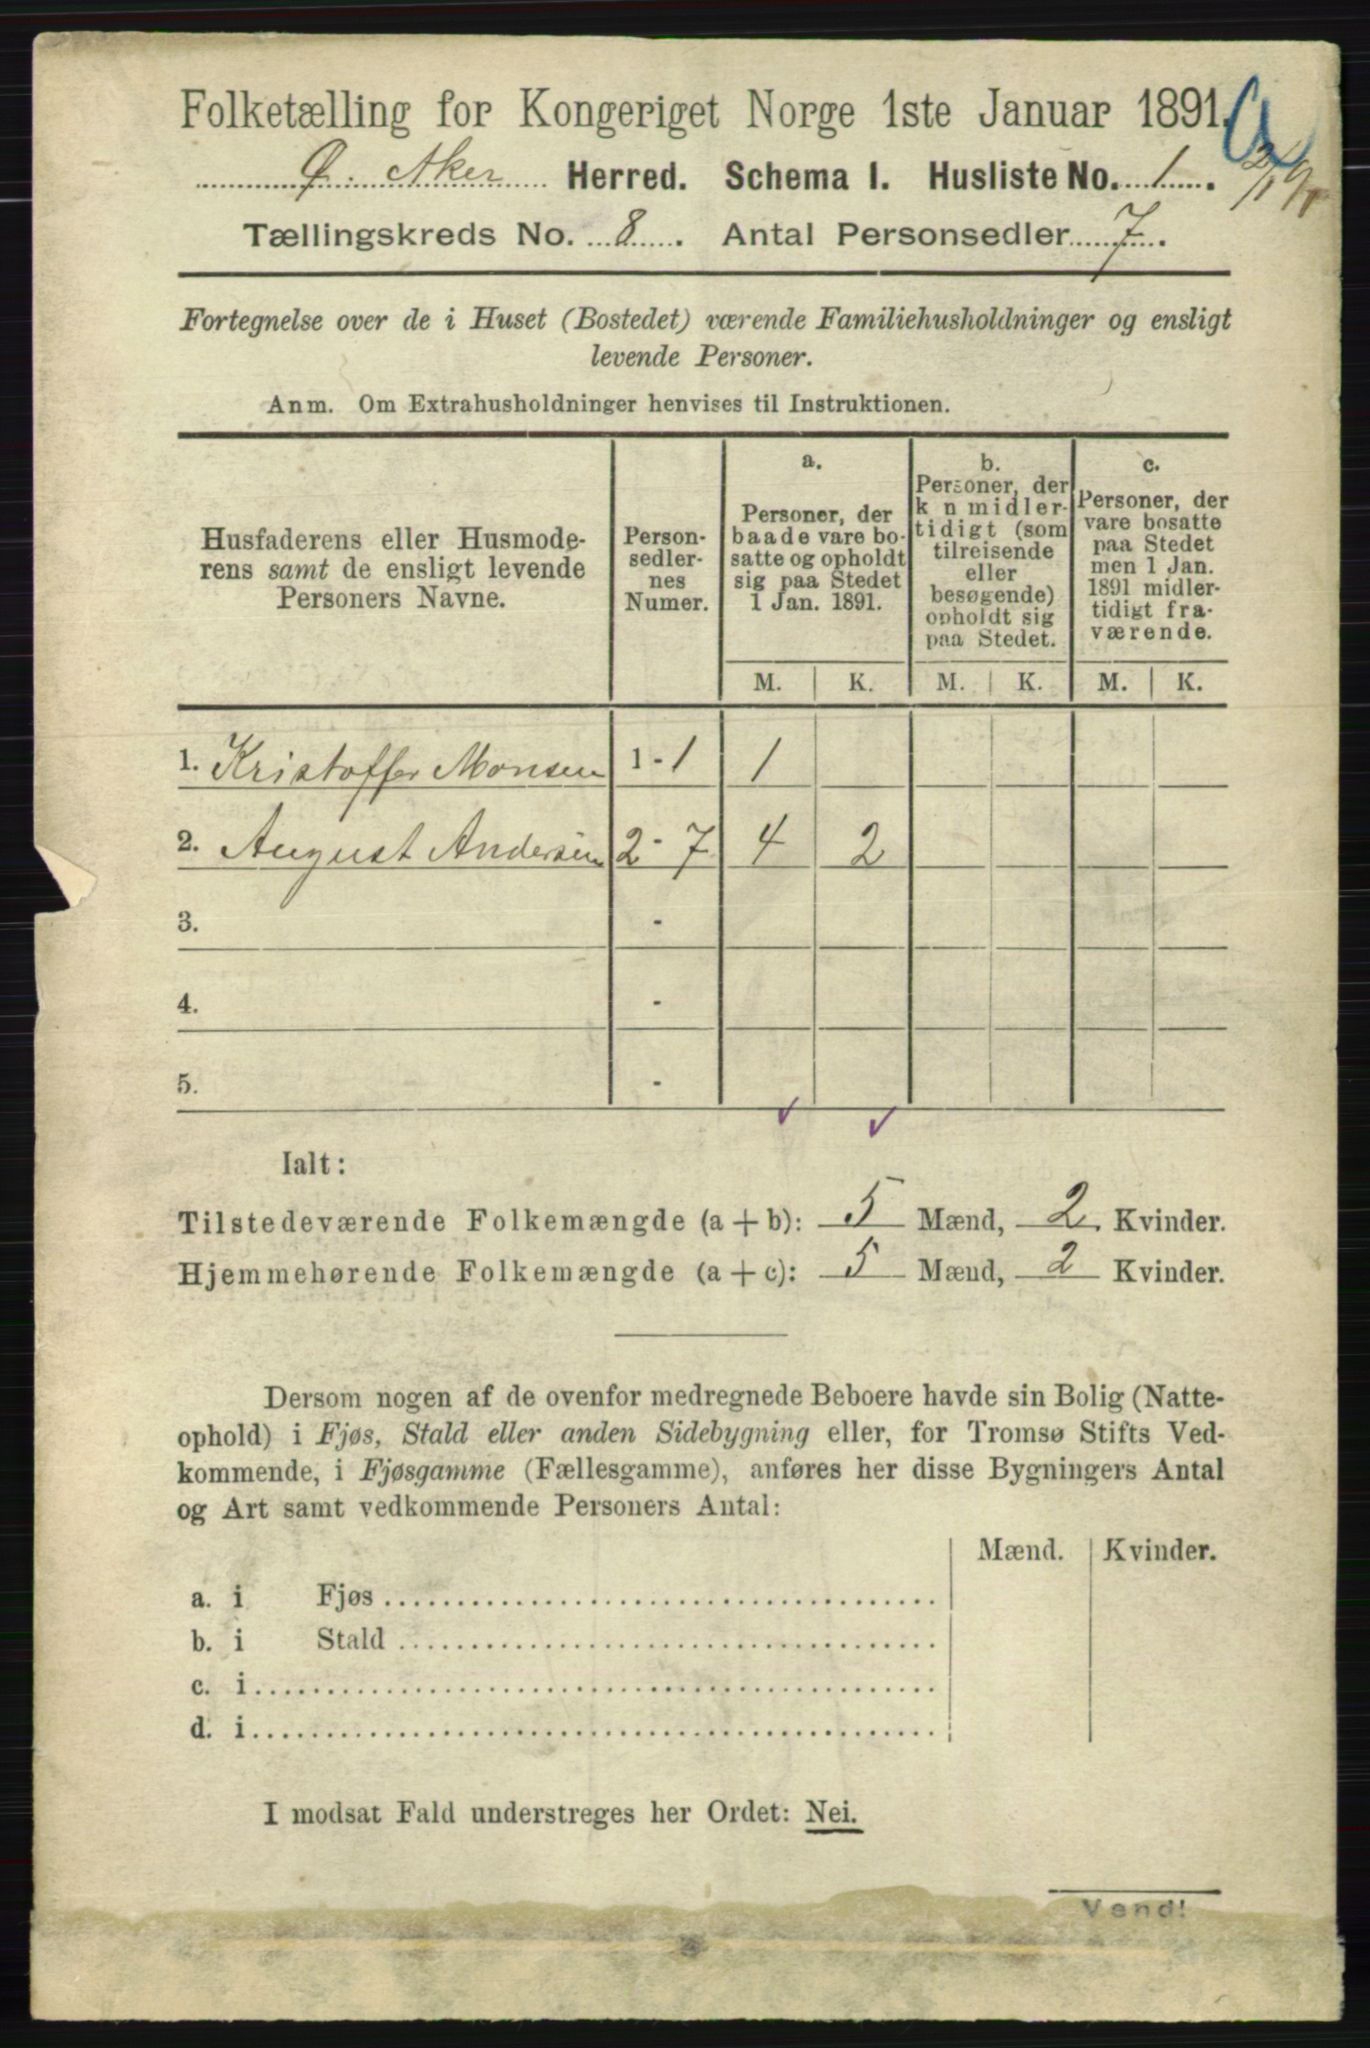 Folketælling for Kongeriget Norge 1ste Januar 1891.
Ø. Aker Herred. Schema I. Husliste No. 1.
Tællingskreds No. 8. Antal Personsedler 7.
Fortegnelse over de i Huset (Bostedet) værende Familiehusholdninger og ensligt
levende Personer.
Anm. Om Extrahusholdninger henvises til Instruktionen.
Husfaderens eller Husmode-
rens samt de ensligt levende
Personers Navne.
Person-
sedler-
nes
Numer.
a.
Personer, der
baade vare bo-
satte og opholdt
sig paa Stedet
1 Jan. 1891.
b.
Personer, der
k n midler-
tidigt (som
tilreisende
eller
besøgende)
opholdt sig
paa Stedet.
c.
Personer, der
vare bosatte
paa Stedet
men 1 Jan.
1891 midler-
tidigt fra-
værende.
M. K. M. K. M. K.
1. Kristoffer Monsen 1 - 1 1
2. August Andersen 2 - 7 4 2
3. -
4. -
5. -
Ialt:
Tilstedeværende Folkemængde (a + b): 5 Mænd, 2 Kvinder.
Hjemmehørende Folkemængde (a + c): 5 Mænd, 2 Kvinder.
Dersom nogen af de ovenfor medregnede Beboere havde sin Bolig (Natte-
ophold) i Fjøs, Stald eller anden Sidebygning eller, for Tromsø Stifts Ved-
kommende, i Fjøsgamme (Fællesgamme), anføres her disse Bygningers Antal
og Art samt vedkommende Personers Antal:
Mænd. Kvinder.
a. i Fjøs
b. i Stald
c. i
d. i
I modsat Fald understreges her Ordet: Nei.
Vend!